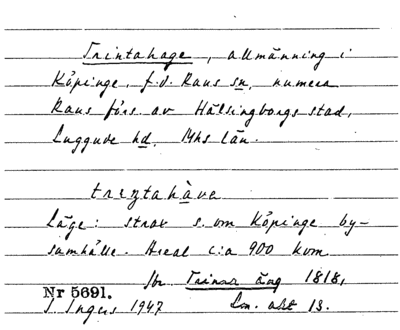 Trintahage, allmänning i
Köpinge, f.d. Raus sn, numera
Raus förs. av Hälsingborgs stad,
Luggude hd. Mhs län.
trintahàva
Läge: strax s. om Köpinge by-
samhälle. Areal c:a 900 kvm
Jbr Trinar äng 1818,
Nr 5691.
J. Ingers 1947 Lm. akt 13.